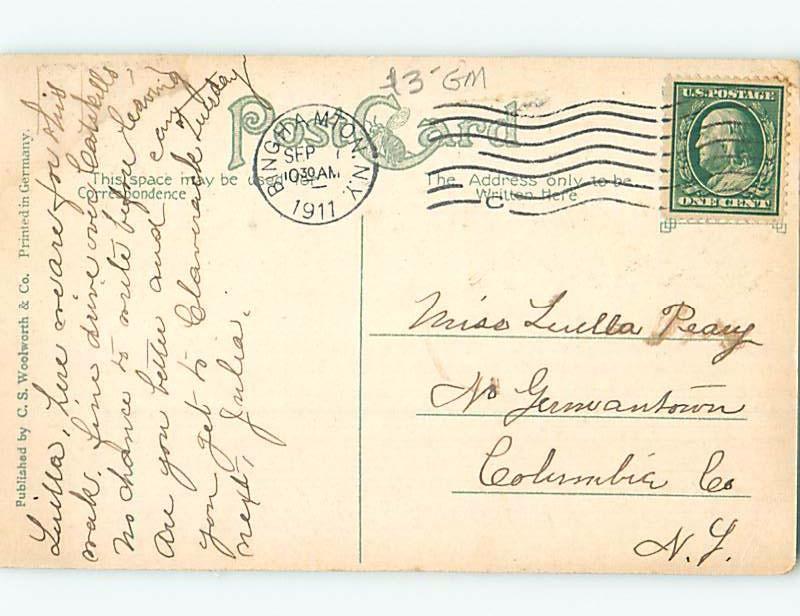 13- GM
Post Card
This space may be used for
Correspondence
The Address only to be
Written Here
BINGHAMTON, N.Y.
SEP
1030 AM
1911
C
U.S. POSTAGE
ONE CENT
Published by C. S. Woolworth & Co. Printed in Germany.
Luella, here we are for this
week. fine drive over Catskills
no chance to write before leaving
Are you better and can
you get to Claverack Tuesday
next, Julia.
Miss Luella Peary
No Germantown
Columbia Co
N.Y.